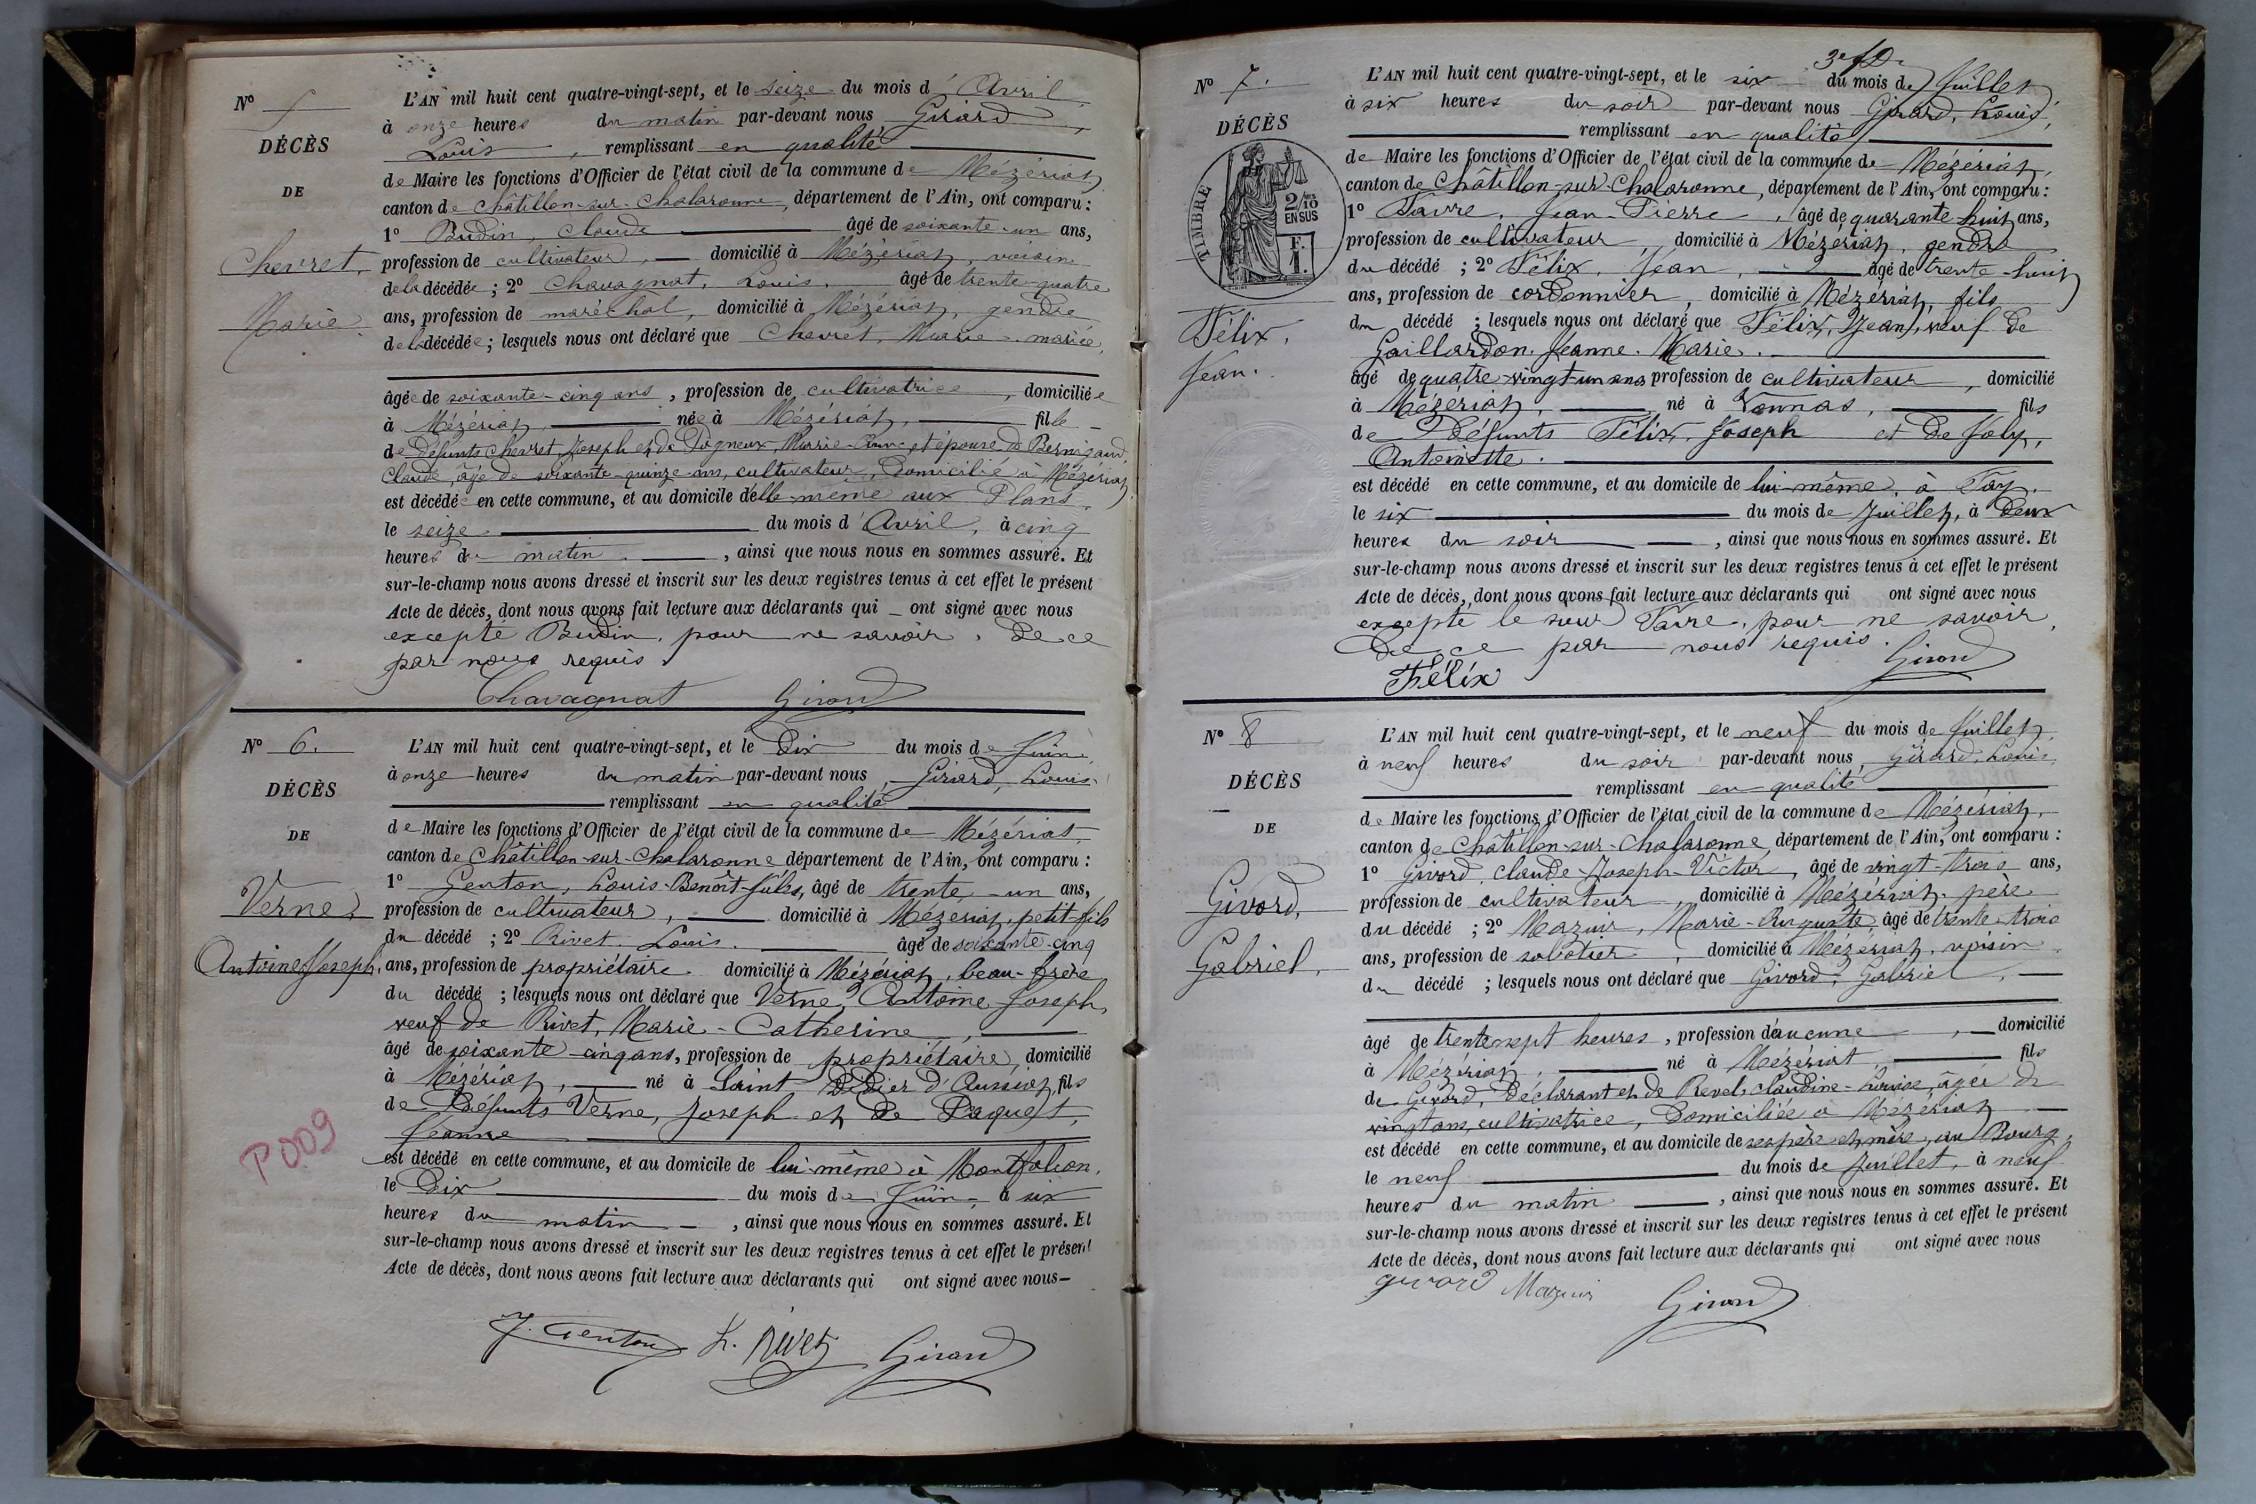 N° 5
DÉCÈS
DE
Chevret,
Marie
L'AN mil huit cent quatre-vingt-sept, et le seize du mois d'Avril,
à onze heures du matin par-devant nous Girard,
Louis, remplissant en qualité
de Maire les fonctions d'Officier de l'état civil de la commune de Mézériat,
canton de Châtillon-sur-Chalaronne, département de l'Ain, ont comparu :
1° Budin, Claude âgé de soixante-un ans,
profession de cultivateur, domicilié à Mézériat, voisin
de la décédée ; 2° Chavagnat, Louis, âgé de trente-quatre
ans, profession de maréchal, domicilié à Mézériat, gendre
de la décédée ; lesquels nous ont déclaré que Chevret, Marie, mariée,
âgée de soixante-cinq ans, profession de cultivatrice, domiciliée
à Mézériat, née à Mézériat, fille
de défunts Chevret, Joseph et de Dagneux, Marie-Anne, et épouse de Bernigaud,
Claude, âgé de soixante-quinze ans, cultivateur, domicilié à Mézériat
est décédée en cette commune, et au domicile d'elle-même aux Plans,
le seize du mois d'Avril, à cinq
heures du matin, ainsi que nous nous en sommes assuré. Et
sur-le-champ nous avons dressé et inscrit sur les deux registres tenus à cet effet le présent
Acte de décès, dont nous avons fait lecture aux déclarants qui ont signé avec nous
excepté Budin, pour ne savoir, de ce
par nous requis.
Chavagnat Girard
N° 6.
DÉCÈS
DE
Verne,
Antoine Joseph,
L'AN mil huit cent quatre-vingt-sept, et le dix du mois de Juin,
à onze heures du matin par-devant nous, Girard, Louis,
remplissant en qualité
de Maire les fonctions d'Officier de l'état civil de la commune de Mézériat,
canton de Châtillon-sur-Chalaronne département de l'Ain, ont comparu :
1° Genton, Louis-Benoît-Jules, âgé de trente-un ans,
profession de cultivateur, domicilié à Mézériat, petit-fils
du décédé ; 2° Rivet, Louis, âgé de soixante-cinq
ans, profession de propriétaire domicilié à Mézériat, beau-frère
du décédé ; lesquels nous ont déclaré que Verne, Antoine Joseph,
veuf de Rivet, Marie-Catherine,
âgé de soixante-cinq ans, profession de propriétaire, domicilié
à Mézériat, né à Saint Didier d'Aussiat, fils
de défunts Verne, Joseph et de Paquet,
Jeanne
est décédé en cette commune, et au domicile de lui-même à Montfalcon,
le dix du mois de Juin, à six
heures du matin, ainsi que nous nous en sommes assuré. Et
sur-le-champ nous avons dressé et inscrit sur les deux registres tenus à cet effet le présent
Acte de décès, dont nous avons fait lecture aux déclarants qui ont signé avec nous
J. Genton L. Rivet Girard
P009
3e f D.
N° 7.
DÉCÈS
TIMBRE
2/10
EN SUS
F.
1.
Félix,
Jean.
L'AN mil huit cent quatre-vingt-sept, et le six du mois de Juillet,
à six heures du soir par-devant nous Girard, Louis,
remplissant en qualité
de Maire les fonctions d'Officier de l'état civil de la commune de Mézériat,
canton de Châtillon-sur-Chalaronne, département de l'Ain, ont comparu :
1° Favre, Jean-Pierre, âgé de quarante-huit ans,
profession de cultivateur, domicilié à Mézériat, gendre
du décédé ; 2° Félix, Jean, âgé de trente-huit
ans, profession de cordonnier, domicilié à Mézériat, fils
du décédé ; lesquels nous ont déclaré que Félix, Jean, veuf de
Gaillardon, Jeanne-Marie.
âgé de quatre-vingt-un ans profession de cultivateur, domicilié
à Mézériat, né à Vonnas, fils
de défunts Félix, Joseph et de Joly,
Antoinette.
est décédé en cette commune, et au domicile de lui-même, à Fay,
le six du mois de Juillet, à deux
heures du soir, ainsi que nous nous en sommes assuré. Et
sur-le-champ nous avons dressé et inscrit sur les deux registres tenus à cet effet le présent
Acte de décès, dont nous avons fait lecture aux déclarants qui ont signé avec nous
excepté le sieur Favre, pour ne savoir,
de ce par nous requis.
Félix Girard
N° 8
DÉCÈS
DE
Givord,
Gabriel,
L'AN mil huit cent quatre-vingt-sept, et le neuf du mois de Juillet,
à neuf heures du soir par-devant nous, Girard, Louis,
remplissant en qualité
de Maire les fonctions d'Officier de l'état civil de la commune de Mézériat,
canton de Châtillon-sur-Chalaronne, département de l'Ain, ont comparu :
1° Givord, Claude-Joseph-Victor, âgé de vingt-trois ans,
profession de cultivateur, domicilié à Mézériat, père
du décédé ; 2° Mazuir, Marie-Auguste âgé de trente-trois
ans, profession de sabotier, domicilié à Mézériat, voisin
du décédé ; lesquels nous ont déclaré que Givord, Gabriel,
âgé de trente-sept heures, profession d'aucune, domicilié
à Mézériat, né à Mézériat, fils
de Givord, déclarant et de Revel, Claudine-Louise, âgée de
vingt ans, cultivatrice, domiciliée à Mézériat
est décédé en cette commune, et au domicile de ses père et mère, au Bourg,
le neuf du mois de Juillet, à neuf
heures du matin, ainsi que nous nous en sommes assuré. Et
sur-le-champ nous avons dressé et inscrit sur les deux registres tenus à cet effet le présent
Acte de décès, dont nous avons fait lecture aux déclarants qui ont signé avec nous
givord Mazuir Girard